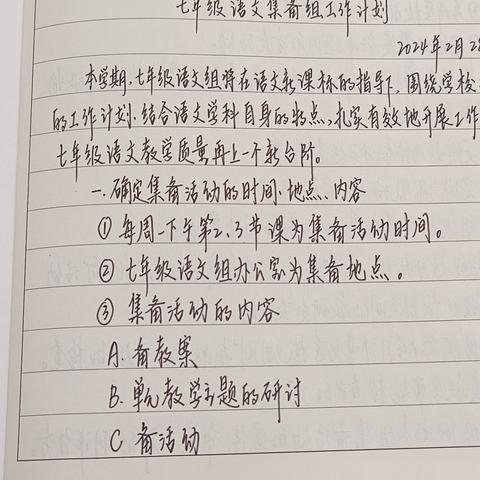 七年级语文集备组工作计划
2024年2月28
本学期,七年级语文组将在语文新课标的指导下,围绕学校
的工作计划.结合语文学科自身的特点,扎实有效地开展工作
七年级语文教学质量再上一个新台阶。
一.确定集备活动的时间.地点、内容
① 每周一下午第2、3节课为集备活动时间。
② 七年级语文组办公室为集备地点。
③ 集备活动的内容
A. 备教案
B. 单元教学主题的研讨
C 备活动